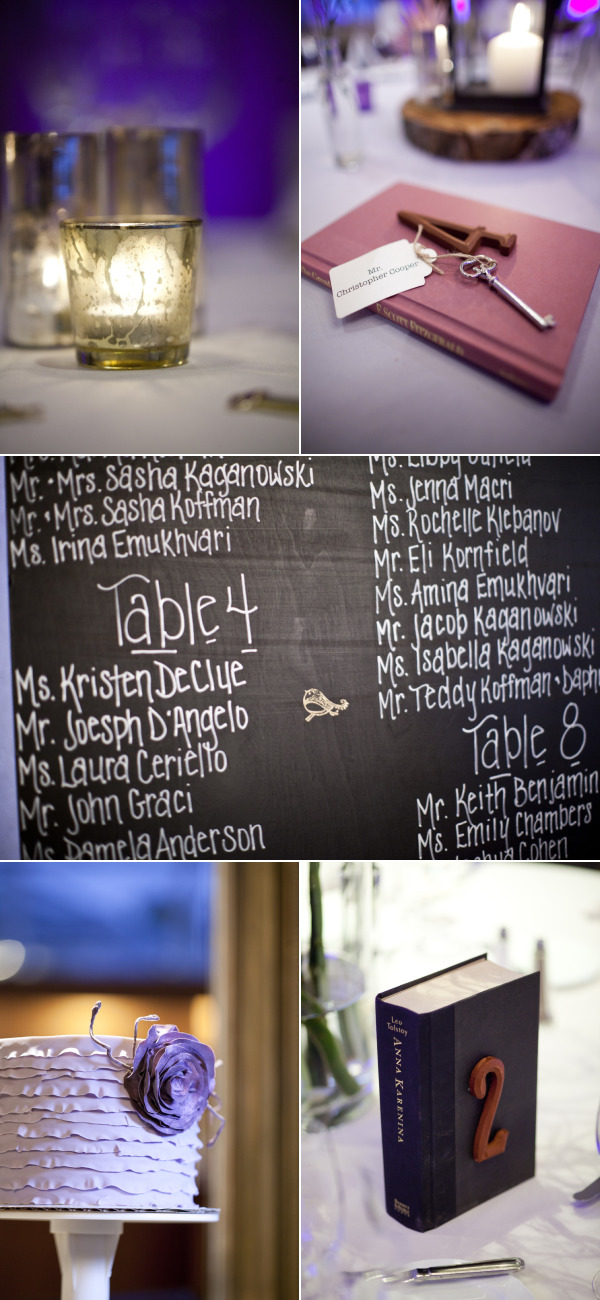 4
Mr.
Christopher Cooper
F. SCOTT FITZGERALD
Mr. • Mrs. Sasha Kaganowski
Mr. • Mrs. Sasha Koffman
Ms. Irina Emukhvari
Table 4
Ms. Kristen DeClue
Mr. Joesph D'Angelo
Ms. Laura Ceriello
Mr. John Graci
Ms. Pamela Anderson
Ms. Libby
Ms. Jenna Macri
Ms. Rochelle Klebanov
Mr. Eli Kornfield
Ms. Amina Emukhvari
Mr. Jacob Kaganowski
Ms. Ysabella Kaganowski
Mr. Teddy Koffman • Daph
Table 8
Mr. Keith Benjamin
Ms. Emily Chambers
Cohen
Leo
Tolstoy
ANNA KARENINA
2